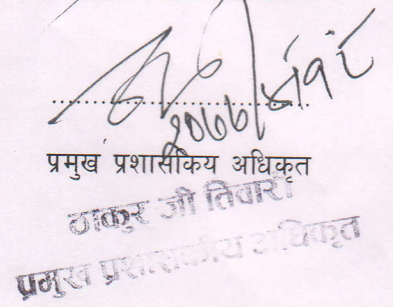 २०७७/
प्रमुख प्रशासकिय अधिकृत
ठाकुर जी तिवारी
प्रमुख प्रशासकीय अधिकृत